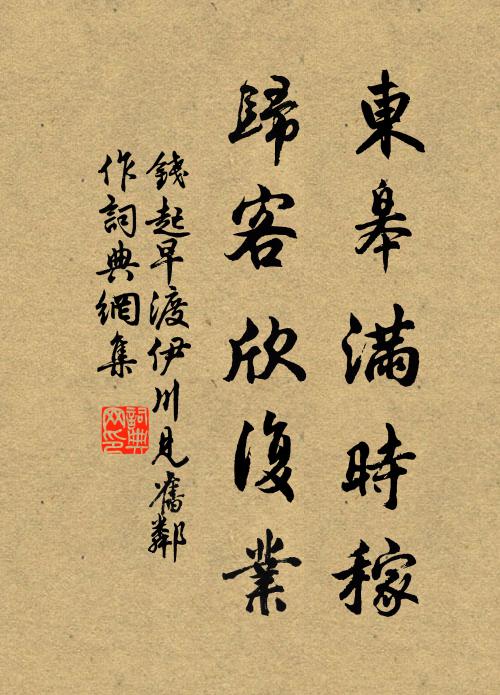 東皋滿時稼
歸客欣復業
錢起早渡伊川見舊鄰
作詞典網集
詞典
网印